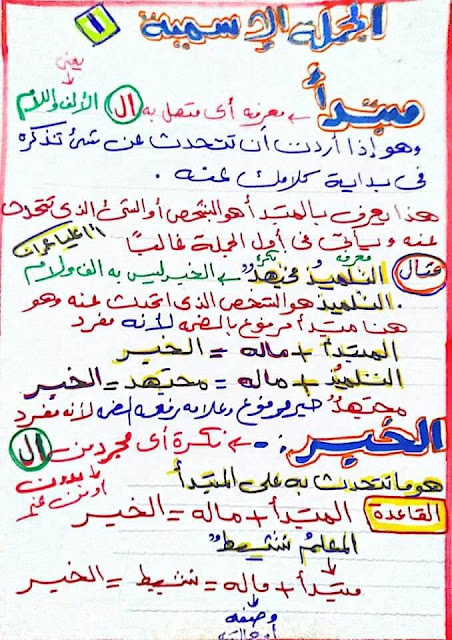 الجملة الإسمية ١
يعنى
مبتدأ ← معرفه أى متصل به ال الألف واللام
وهو إذا أردن أن تتحدث عن شئ تذكره
فى بداية كلامك عنه .
هذا يعرف بالمبتدأ هو الشخص أو الشئ الذى تتحدث
عنه ويأتى فى أول الجملة غالباً
مثال معرفه نكرة
التلميذُ مجتهدٌ ← الخبر ليس به الف ولام
التلميذ هو الشخص الذى اتحدث عنه وهو
هنا مبتدأ مرفوع بالضمه لأنه مفرد
المبتدأ + ماله = الخبر
التلميذُ + ماله = مجتهد = الخبر
مجتهدٌ خبر مرفوع وعلامه رفعه الضمه لأنه مفرد
الخبر :. ← نكرة أى مجرد من ال
بدون
هو ما تتحدث به على المبتدأ
القاعدة المبتدأ + ماله = الخبر
المعلمُ نشيطٌ
مبتدأ + ماله = نشيط = الخبر
وصفه